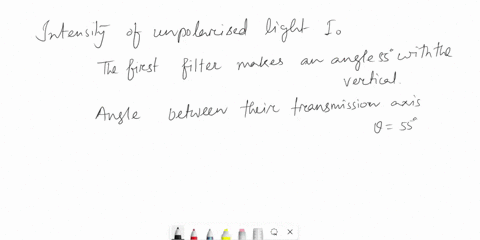 Intensity of unpolarised light I₀
The first filter makes an angle 55° with the
vertical.
Angle between their transmission axis
θ = 55°